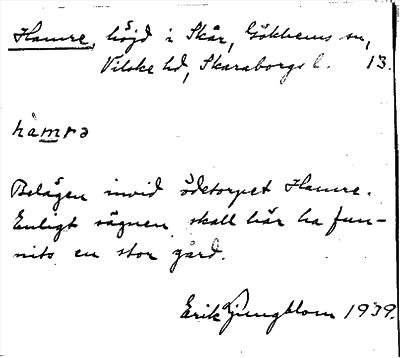 Hamre, höjd i Skår, Gökhems sn,
Vilske hd, Skaraborgs l. 13.
hamrə
Belägen invid ödetorpet Hamre.
Enligt sägnen skall här ha fun-
nits en stor gård.
Erik Ljungblom 1939.